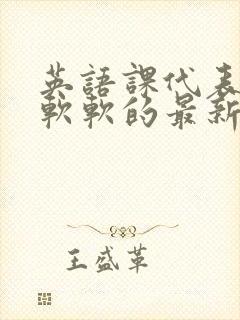 英語課代表
軟軟的最新
王盛革